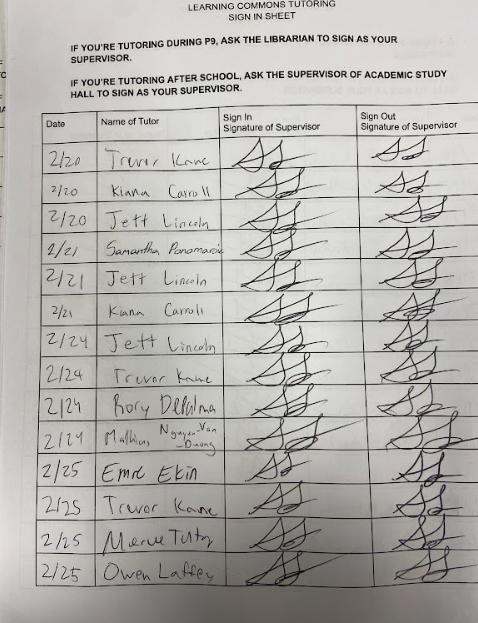 LEARNING COMMONS TUTORING
SIGN IN SHEET
IF YOU'RE TUTORING DURING P9, ASK THE LIBRARIAN TO SIGN AS YOUR
SUPERVISOR.
IF YOU'RE TUTORING AFTER SCHOOL, ASK THE SUPERVISOR OF ACADEMIC STUDY
HALL TO SIGN AS YOUR SUPERVISOR.
Date Name of Tutor Sign In Signature of Supervisor Sign Out Signature of Supervisor
2/20 Trevor Kane
2/20 Kiana Carroll
2/20 Jett Lincoln
2/21 Samantha
2/21 Jett Lincoln
2/21 Kiana Carroll
2/24 Jett Lincoln
2/24 Trevor Kane
2/24 Rory DePalma
2/24 Mathias Nguyen-Van
-Duong
2/25 Emre Ekin
2/25 Trevor Kane
2/25 Merve
2/25 Owen Laffey